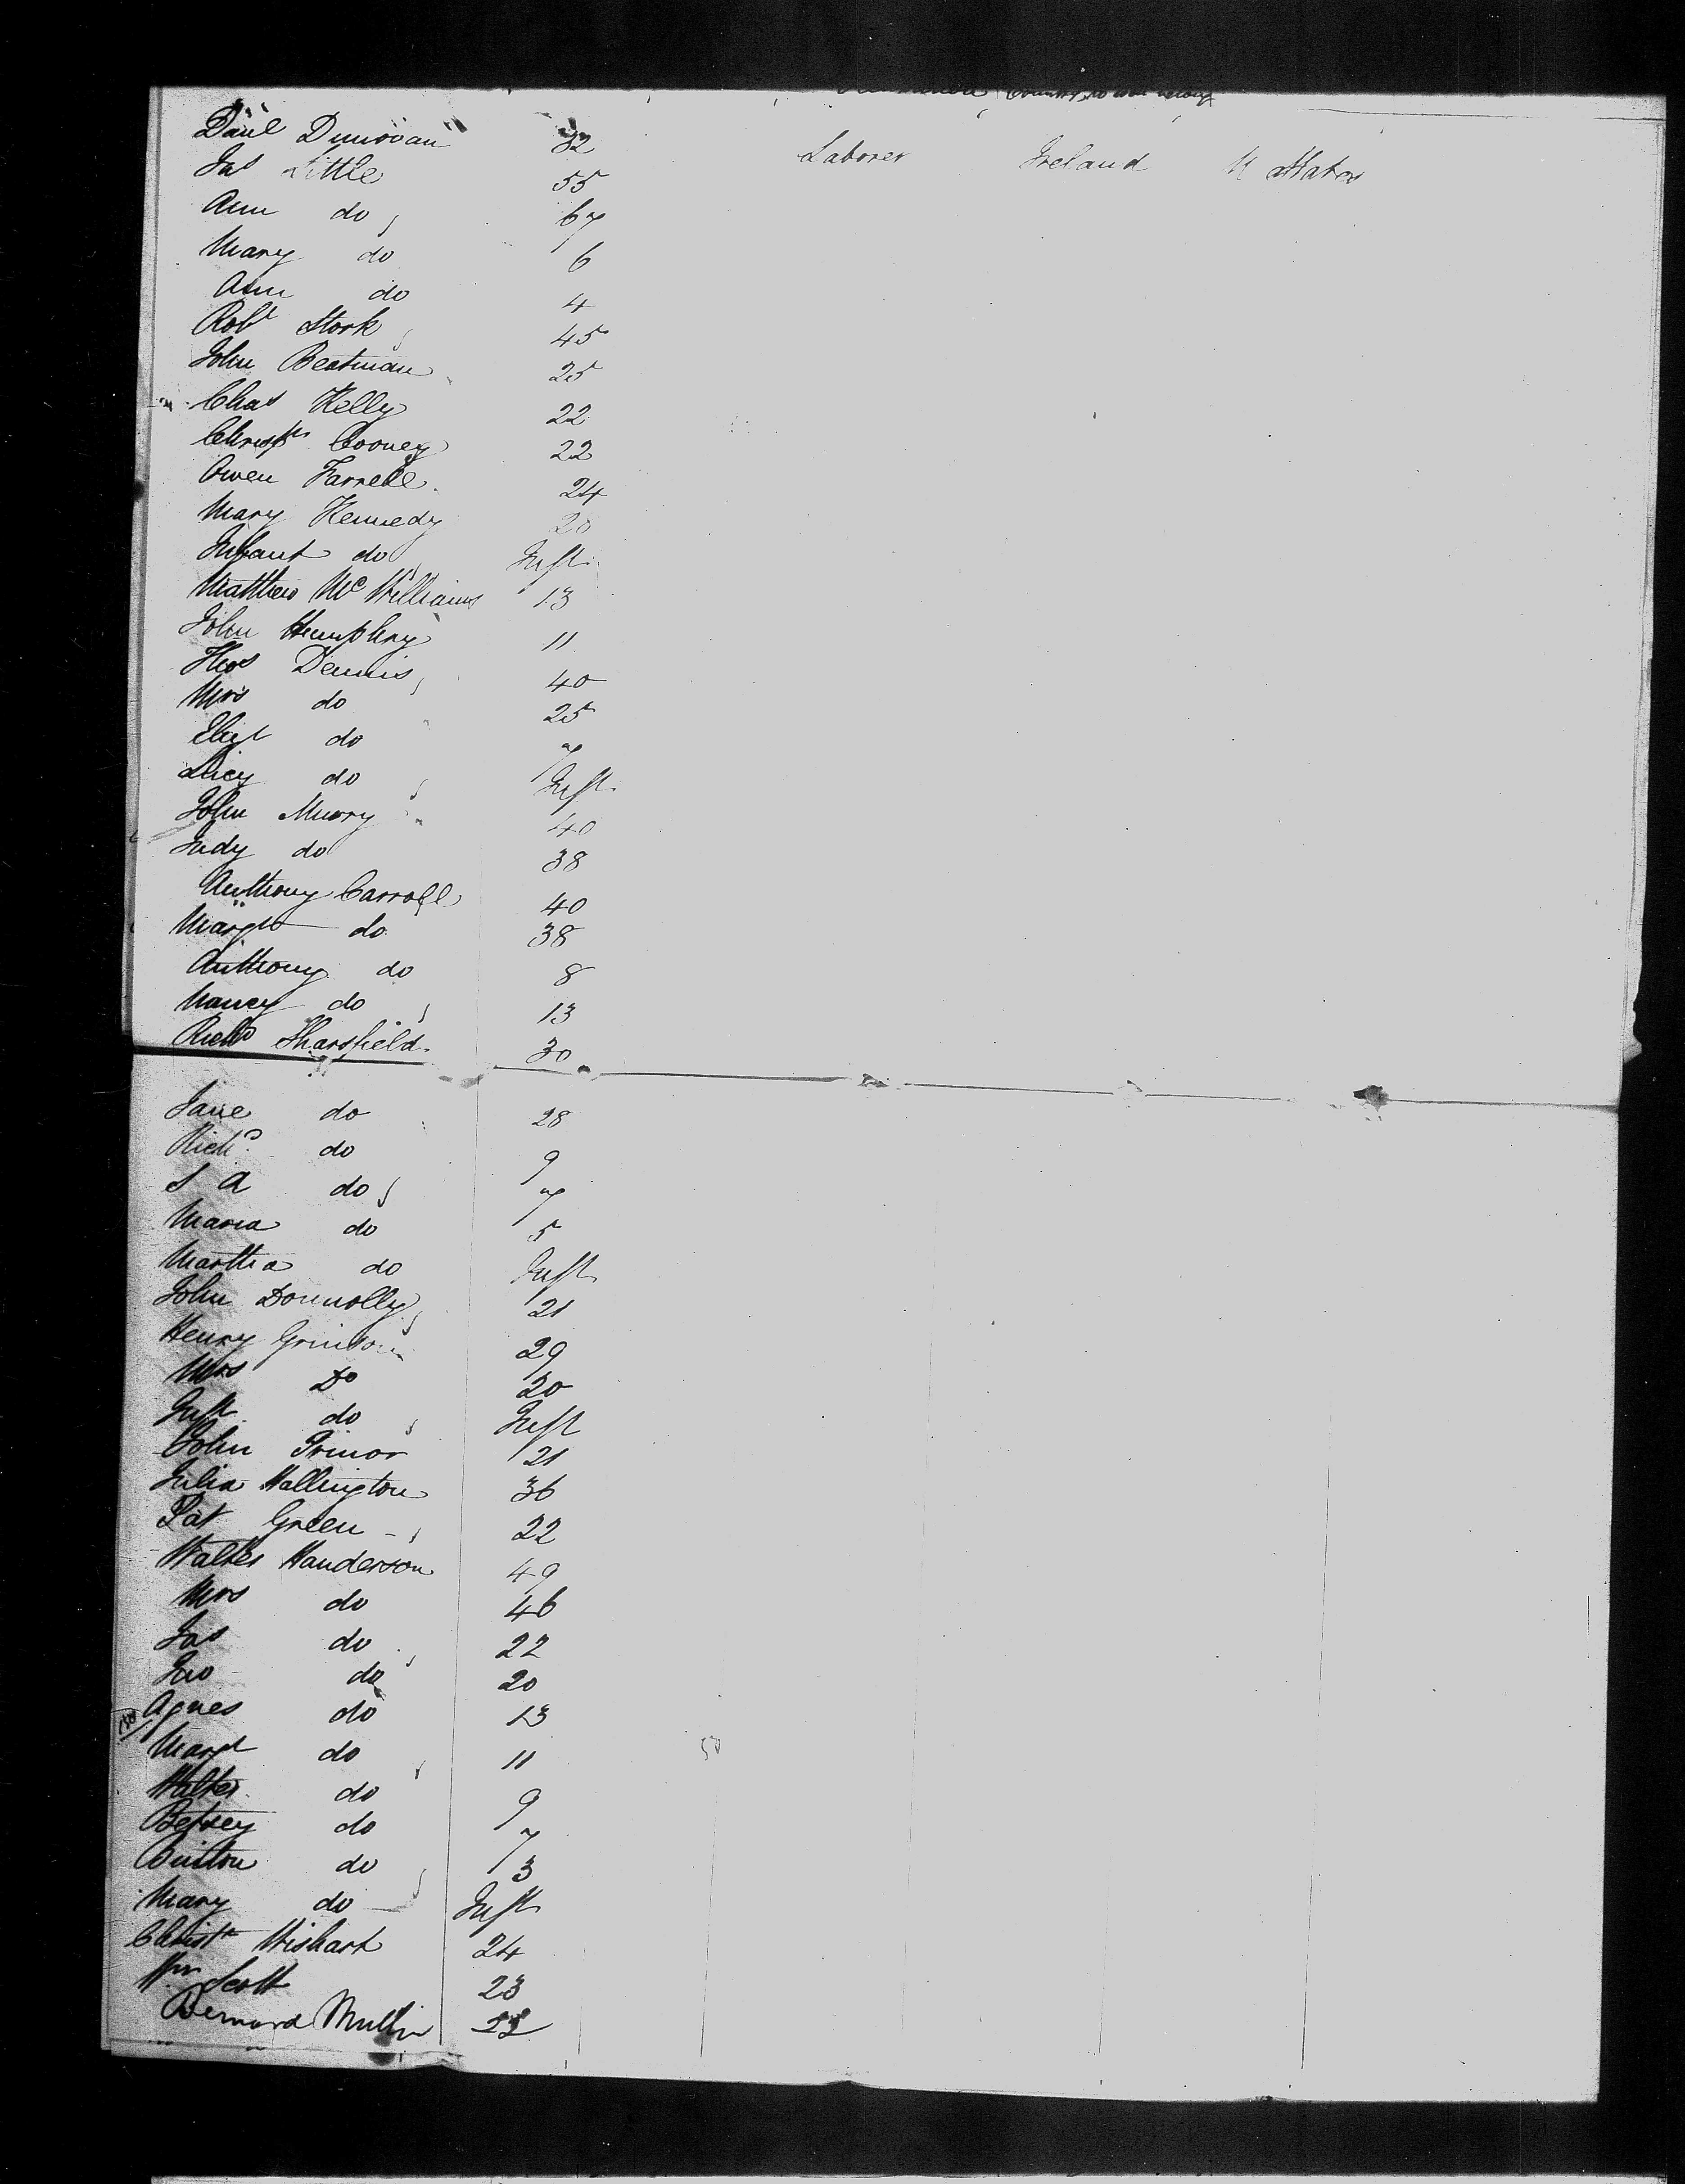 Country to wh belong
Danl Dunovan 32 Laborer Ireland U States
Jas Little 55
Ann do 67
Mary do 6
Ann do 4
Robt Stork 45
John Beatman 25
Chas Kelly 22
Christr Cooney 22
Owen Farrell 24
Mary Kennedy 20
Infant do Inft
Matthew Mc Williams 13
John Humphry 11
Thos Dennis 40
Mrs do 25
Elizt do 7
Lucy do Inft
John Murry 40
Judy do 38
Anthony Carroll 40
Margt do 38
Anthony do 8
Nancy do 13
Richd Sharsfield 30
Jane do 28
Richd do 9
S A do 7
Maria do 5
Martha do Inft
John Donnolly 21
Henry Grinson 29
Mrs Do 20
Inft do Inft
John Primor 21
Julia Hallington 36
Pat Green 22
Walter Handerson 49
Mrs do 46
Jas do 22
Jno do 20
Agnes do 13
Margt do 11
Walter do 9
Betsey do 7
do 3
Mary do Inft
Christr Wishart 24
Wm Scott 23
Bernard Mullin 22